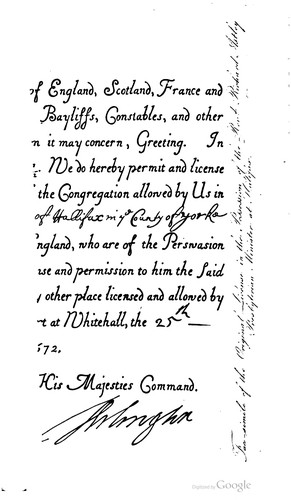 of England, Scotland, France and
Bayliffs, Constables, and other
n it may concern, Greeting. In
We do hereby permit and license
the Congregation allowed by Us in
of Hallifax in ye County of Yorke
ngland, who are of the Perswasion
use and permission to him the said
other place licensed and allowed by
t at Whitehall, the 25th
572.
His Majesties Command.
Arlington
Fac-simile of the Original License in the Possession of the Revd. Richard Astley
Presbyterian Minister at
Digitized by Google